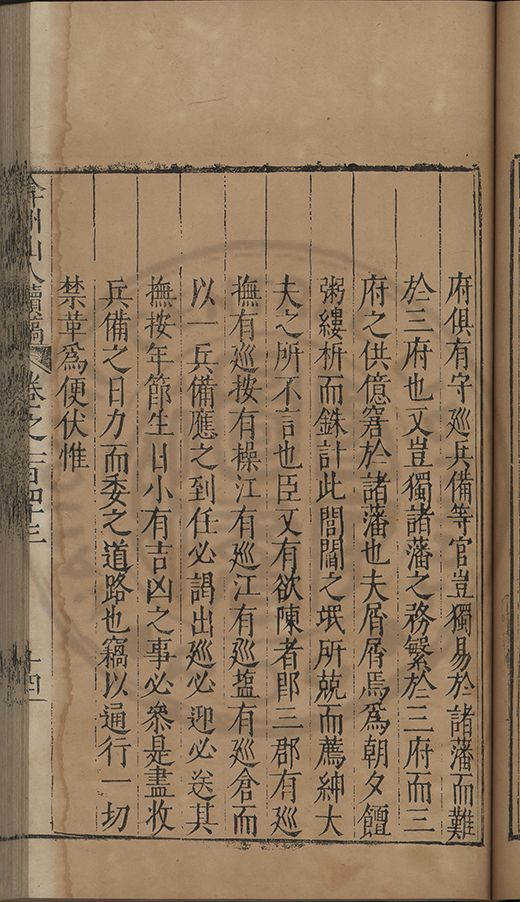 府俱有守廵兵備等官豈獨易於諸藩而難
於三府也又豈獨諸藩之務繁於三府而三
府之供億窘於諸藩也夫屑屑焉爲朝夕饘
粥縷析而銖計此閭閻之氓所兢而薦紳大
夫之所不言也臣又有欲陳者郎三郡有廵
撫有廵按有操江有廵江有廵塩有廵倉而
以一兵備應之到任必謁出廵必迎必送其
撫按年節生日小有吉凶之事必叅是盡收
兵備之日力而委之道路也竊以通行一切
禁革爲便伏惟
弇州山人續稿 卷之一百四十三 十四